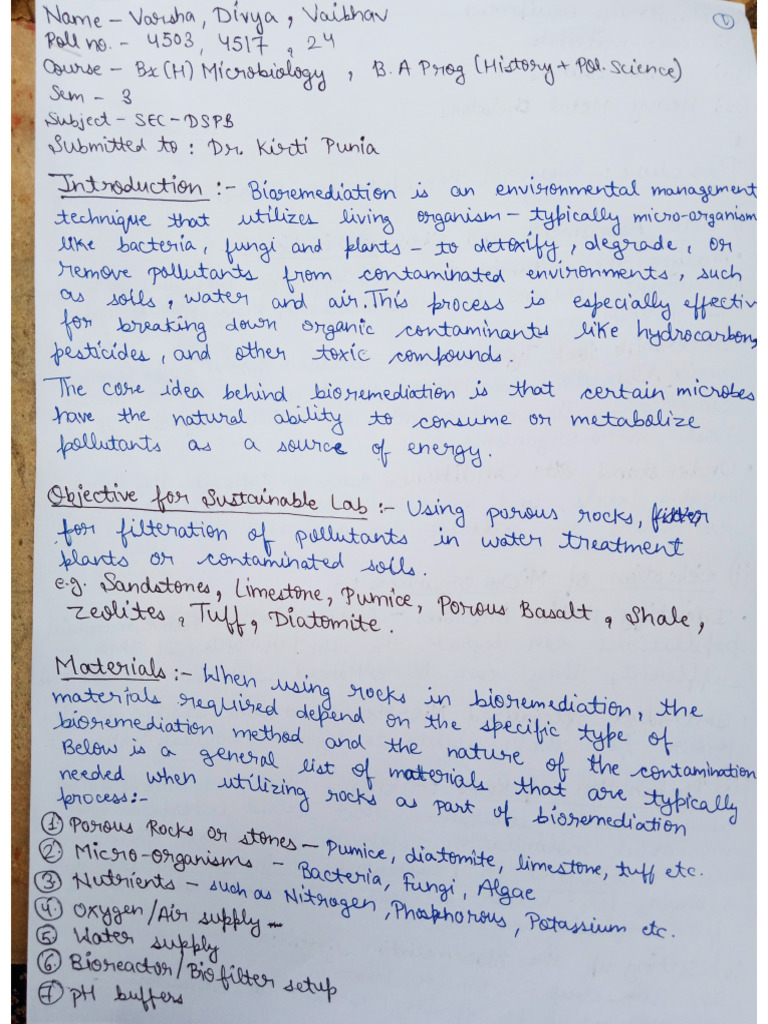 ①
Name - Varsha, Divya, Vaibhav
Roll no. - 4503, 4517, 24
Course - Bsc (H) Microbiology, B.A Prog (History + Pol. Science)
Sem - 3
Subject - SEC - DSPB
Submitted to : Dr. Kirti Punia
Introduction :- Bioremediation is an environmental management
technique that utilizes living organism - typically micro-organism
like bacteria, fungi and plants - to detoxify, degrade, or
remove pollutants from contaminated environments, such
as soils, water and air. This process is especially effectiv
for breaking down organic contaminants like hydrocarbons,
pesticides, and other toxic compounds.
The core idea behind bioremediation is that certain microbes
have the natural ability to consume or metabolize
pollutants as a source of energy.
Objective for Sustainable Lab :- Using porous rocks,
for filteration of pollutants in water treatment
plants or contaminated soils.
e.g. Sandstones, Limestone, Pumice, Porous Basalt, Shale,
Zeolites, Tuff, Diatomite.
Materials :- When using rocks in bioremediation, the
materials required depend on the specific type of
bioremediation method and the nature of the contamination
Below is a general list of materials that are typically
needed when utilizing rocks as part of bioremediation
process:-
① Porous Rocks or stones - Pumice, diatomite, limestone, tuff etc.
② Micro-organisms - Bacteria, Fungi, Algae
③ Nutrients - such as Nitrogen, Phosphorous, Potassium etc.
④ Oxygen/Air supply -
⑤ Water supply
⑥ Bioreactor/Biofilter setup
⑦ pH buffers